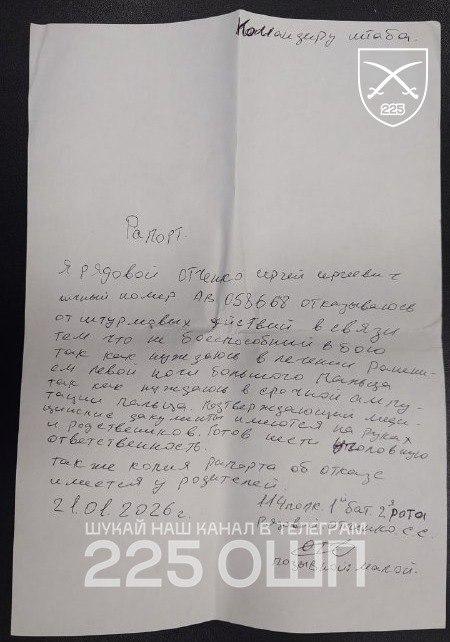 Командиру штаба.
225
Рапорт.
Я рядовой Отченко сергей сергеевич
личный номер АВ 058668 отказываюсь
от штурмовых действий в связи
тем что не боеспособный в бою
так как нуждаюсь в лечении Ранени-
ем левой ноги большого пальца
так как нуждаюсь в срочной ампу-
тации пальца. Подтверждающий меди-
цинские дакументы имеются на руках
и родственников. Готов нести уголовную
ответственность.
также копия рапорта об отказе
имеется у родителей.
21.01.2026г.
114 полк. 1й бат. 2я рота
ШУКАЙ НАШ КАНАЛ В ТЕЛЕГРАМ
С.С.
225 ОШП
позывной